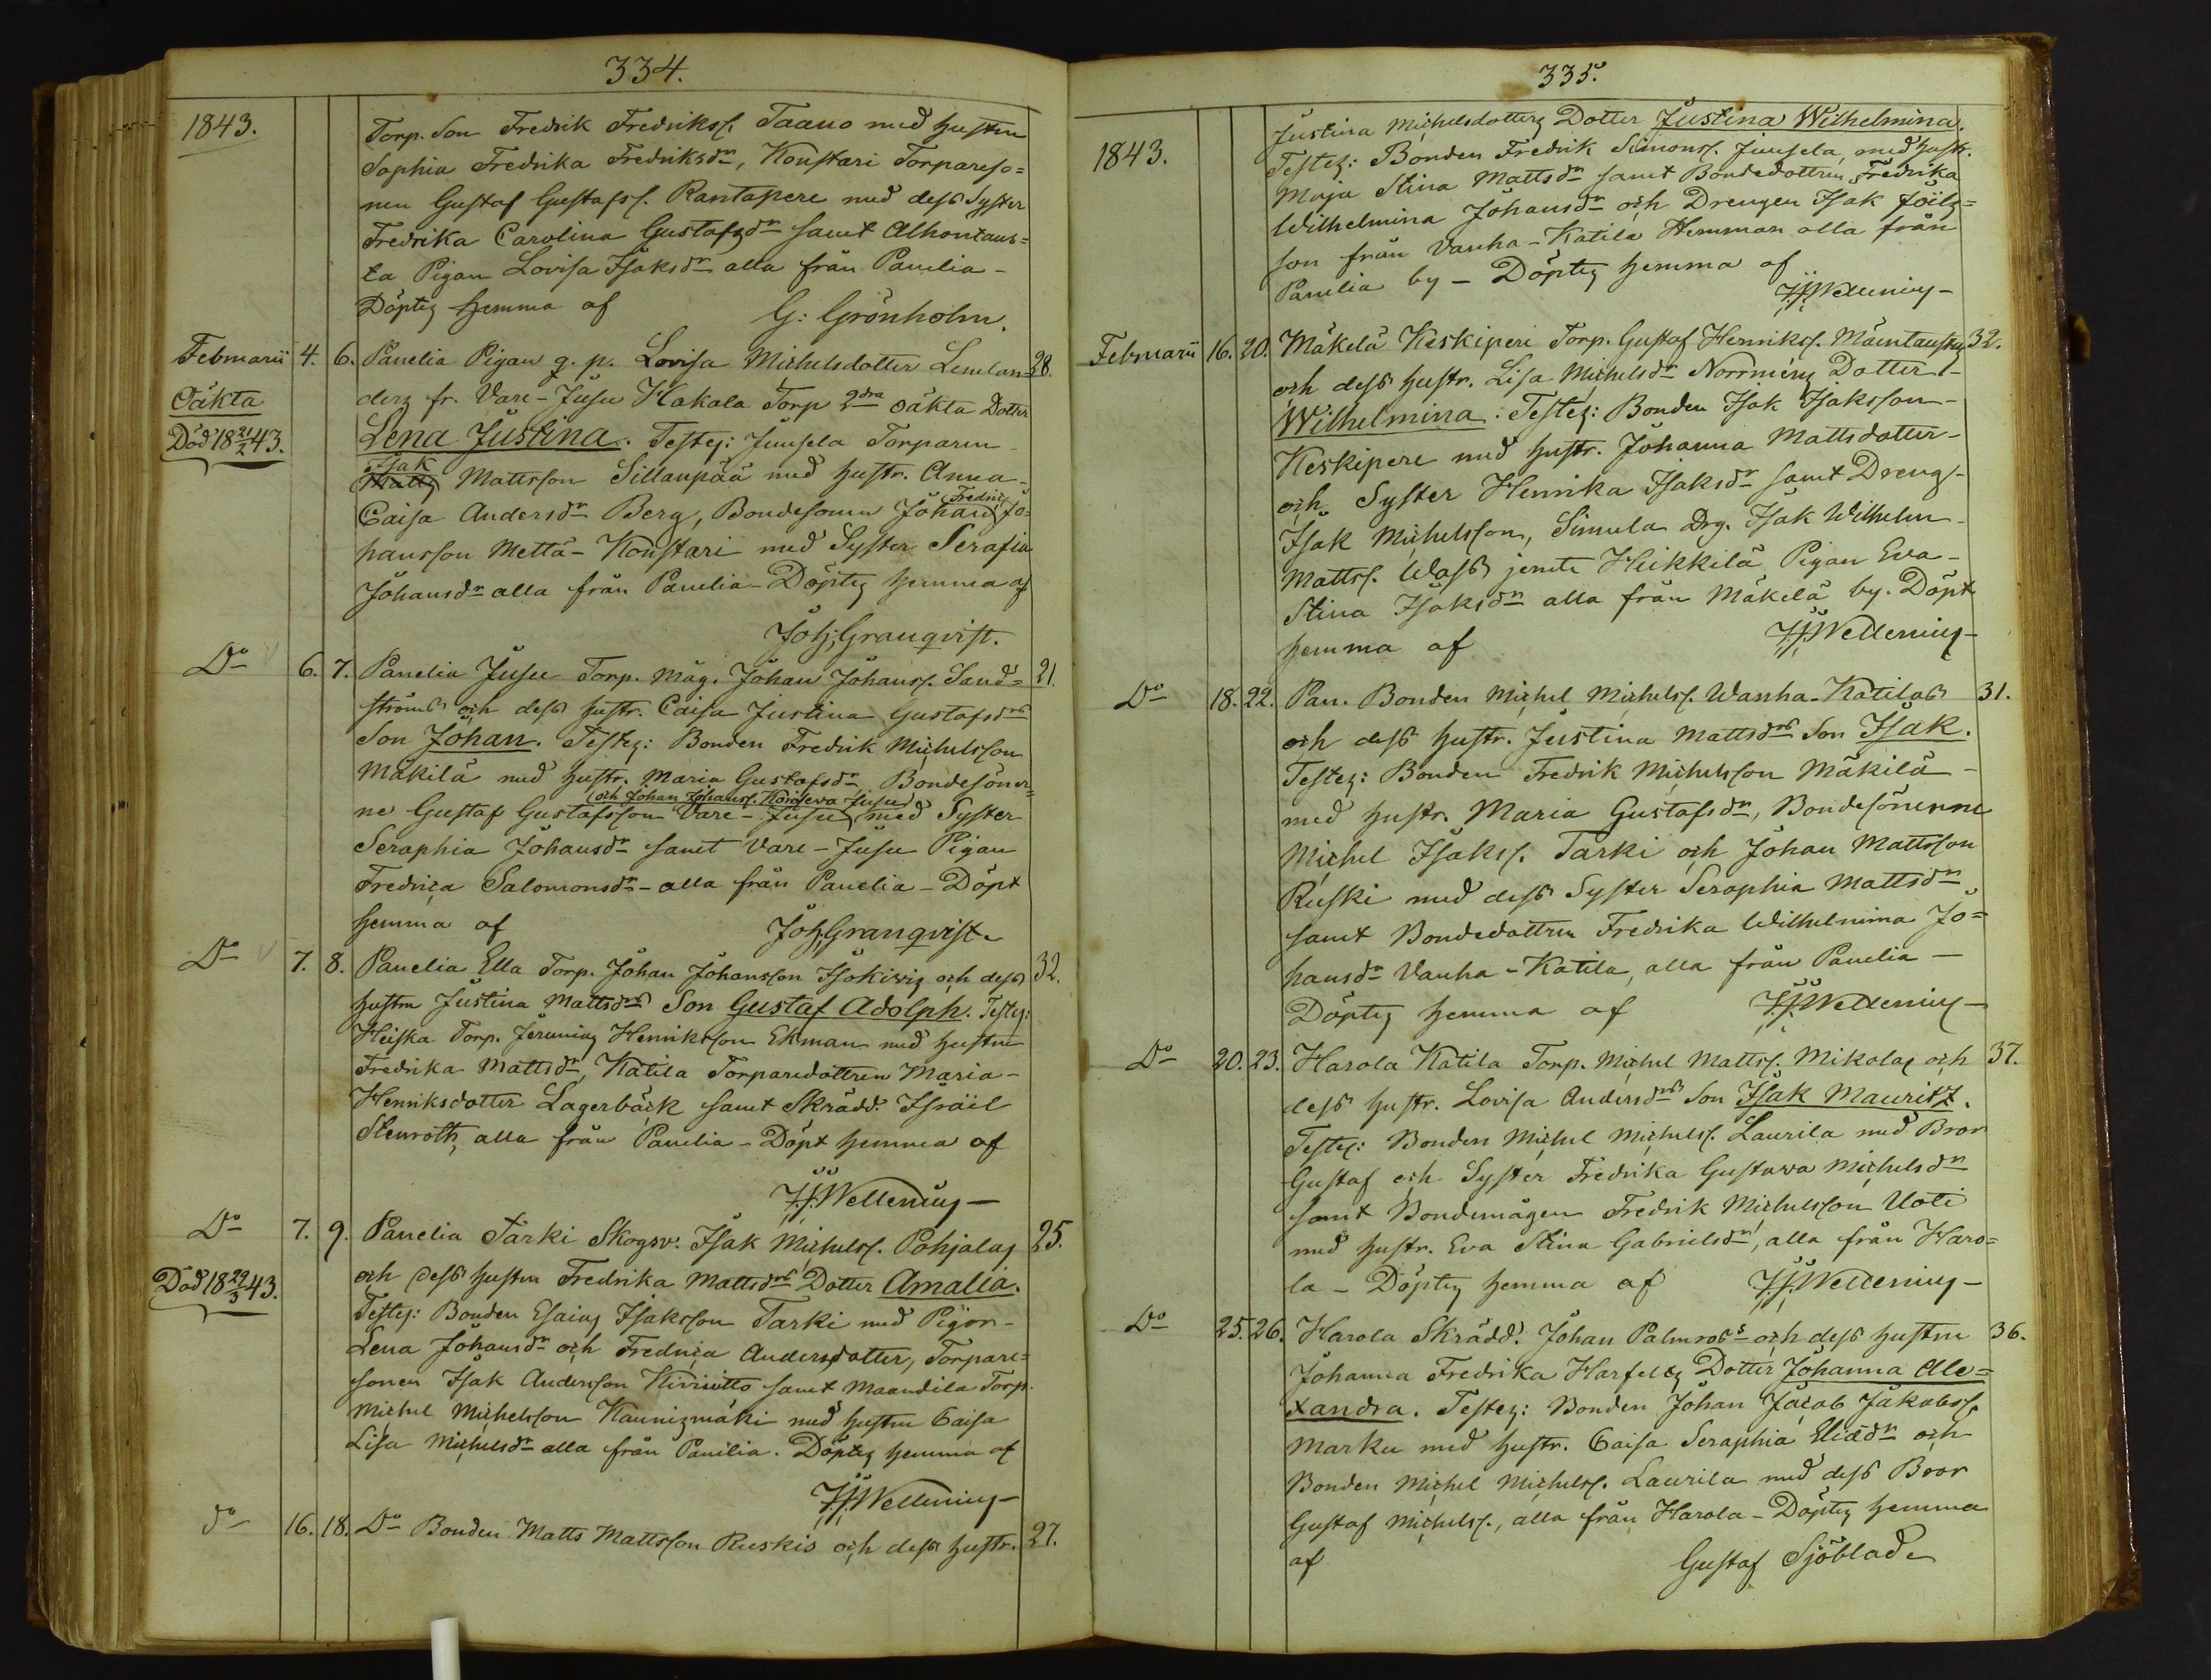 334.
1843.
Torp. Son Fredrik Fredrikss. Taano med hustru
Sophia Fredrika Fredriksdr, Konstari Torpareso=
nen Gustaf Gustafss. Rantapere med dess Syster
Fredrika Carolina Gustafsdr samt Alhontaus=
ta Pigan Lovisa Isaksdr alla från Panelia -
Döptes hemma af G: Grönholm.
Februarii 4. 6. Panelia Pigan g. p. Lovisa Michelsdotter Lenelan= 28.
Oäkta ders fr. Vare-Jusu Hakala Torp 2dra oäkta Dotter
Död 18 21/2 43. Lena Justina. Testes: Juusela Torparen
Isak
Matts Mattsson Sillanpää med hustr. Anna-
Caisa Andersdr Berg, Bondesonen Johan Fredric Jo=
hansson Mettä-Konstari med Syster Serafia
Johansdr alla från Panelia - Döptes hemma af
Joh: Granqvist.
Do 6. 7. Panelia Jusu Torp. Måg. Johan Johanss. Sand= 21.
ströms och dess hustr. Caisa Justina Gustafsdrs
Son Johan. Testes: Bonden Fredrik Michelsson
Mäkilä med hustr. Maria Gustafsdr Bondesöner=
och Johan Johanss. Jusu
ne Gustaf Gustafsson Vare-Jusu med Syster
Seraphia Johansdr samt Vare-Jusu Pigan
Fredrica Salomonsdr - alla från Panelia - Döpt
hemma af Joh: Granqvist.
Do 7. 8. Panelia Ella Torp. Johan Johansson Isokivis och dess 32.
hustru Justina Mattsdrs Son Gustaf Adolph. Testes:
Heiska Torp. Jeremias Henriksson Ekman med hustru
Fredrika Mattsdr, Katila Torparedottren Maria-
Henriksdotter Lagerbäck samt Skrädd. Israël
Stenroth, alla från Panelia - Döpt hemma af
J.J. Wellenius -
Do 7. 9. Panelia Tarki Skogsv. Isak Michelss. Pohjalas 25.
Död 18 29/3 43. och dess hustru Fredrika Mattsdrs Dotter Amalia.
Testes: Bonden Esaias Isaksson Tarki med Pigor-
Lena Johansdr och Fredrica Andersdotter, Torpare=
sonen Isak Andersson Kiviniitto samt Maandila Torp.
Michel Michelsson Kaunismäki med hustru Caisa
Lisa Michelsdr alla från Panilia. Döptes hemma af
J.J. Wellenius -
do 16. 18. Do Bonden Matts Mattsson Ruskis och dess hustr. 27.
335.
1843.
Justina Michelsdotters Dotter Justina Wilhelmina.
Testes: Bonden Fredrik Simonss. Juusela, med hustr.
Maja Stina Mattsdr samt Bondedottren Fredrika
Wilhelmina Johansdr och Drengen Isak
son från Vanha-Katila Hemman alla från
Panilia by - Döptes hemma af
J.J. Wellenius -
Februarii 16. 20. Mäkelä Keskiperi Torp. Gustaf Henrikss. Mäentaustas 32.
och dess hustr. Lisa Michelsdr Dotter -
Wilhelmina. Testes: Bonden Isak Isaksson -
Keskipere med hustr. Johanna Mattsdotter -
och Syster Henrika Isaksdr samt Dreng-
Isak Michelsson, Simula Drg. Isak Wilhelm
Mattss. Wass jemte Heikkilä Pigan Eva -
Stina Isaksdr alla från Mäkelä by. Döpt
hemma af J.J. Wellenius -
Do 18. 22. Pan. Bonden Michel Michelss. Wanha-Katilas 31.
och dess hustr. Justina Mattsdrs Son Isak.
Testes: Bonden Fredrik Michelsson Mäkilä -
med hustr. Maria Gustafsdr, Bondesönerne
Michel Isakss. Tarki och Johan Mattsson
Ruski med dess Syster Seraphia Mattsdr
samt Bondedottren Fredrika Wilhelmina Jo=
hansdr Vanha-Katila, alla från Panelia -
Döptes hemma af J.J. Wellenius -
Do 20. 23. Harola Katila Torp. Michel Mattss. Mikolas och 37.
dess hustr. Lovisa Andersdrs Son Isak Mauritz.
Testes: Bonden Michel Michelss. Laurila med Bror
Gustaf och Syster Fredrika Gustava Michelsdr
samt Bondemågen Fredrik Michelsson Uoti
med hustr. Eva Stina Gabrielsdr, alla från Haro=
la - Döptes hemma af J.J. Wellenius -
Do 25. 26. Harola Skrädd. Johan Palmross och dess hustru 36.
Johanna Fredrika Harfelts Dotter Johanna Ale=
xandra. Testes: Bonden Johan Jacob Jakobss.
Marku med hustr. Caisa Seraphia Eliædr och
Bonden Michel Michelss. Laurila med dess Bror
Gustaf Michelss., alla från Harola - Döptes hemma
af Gustaf Sjöblad.